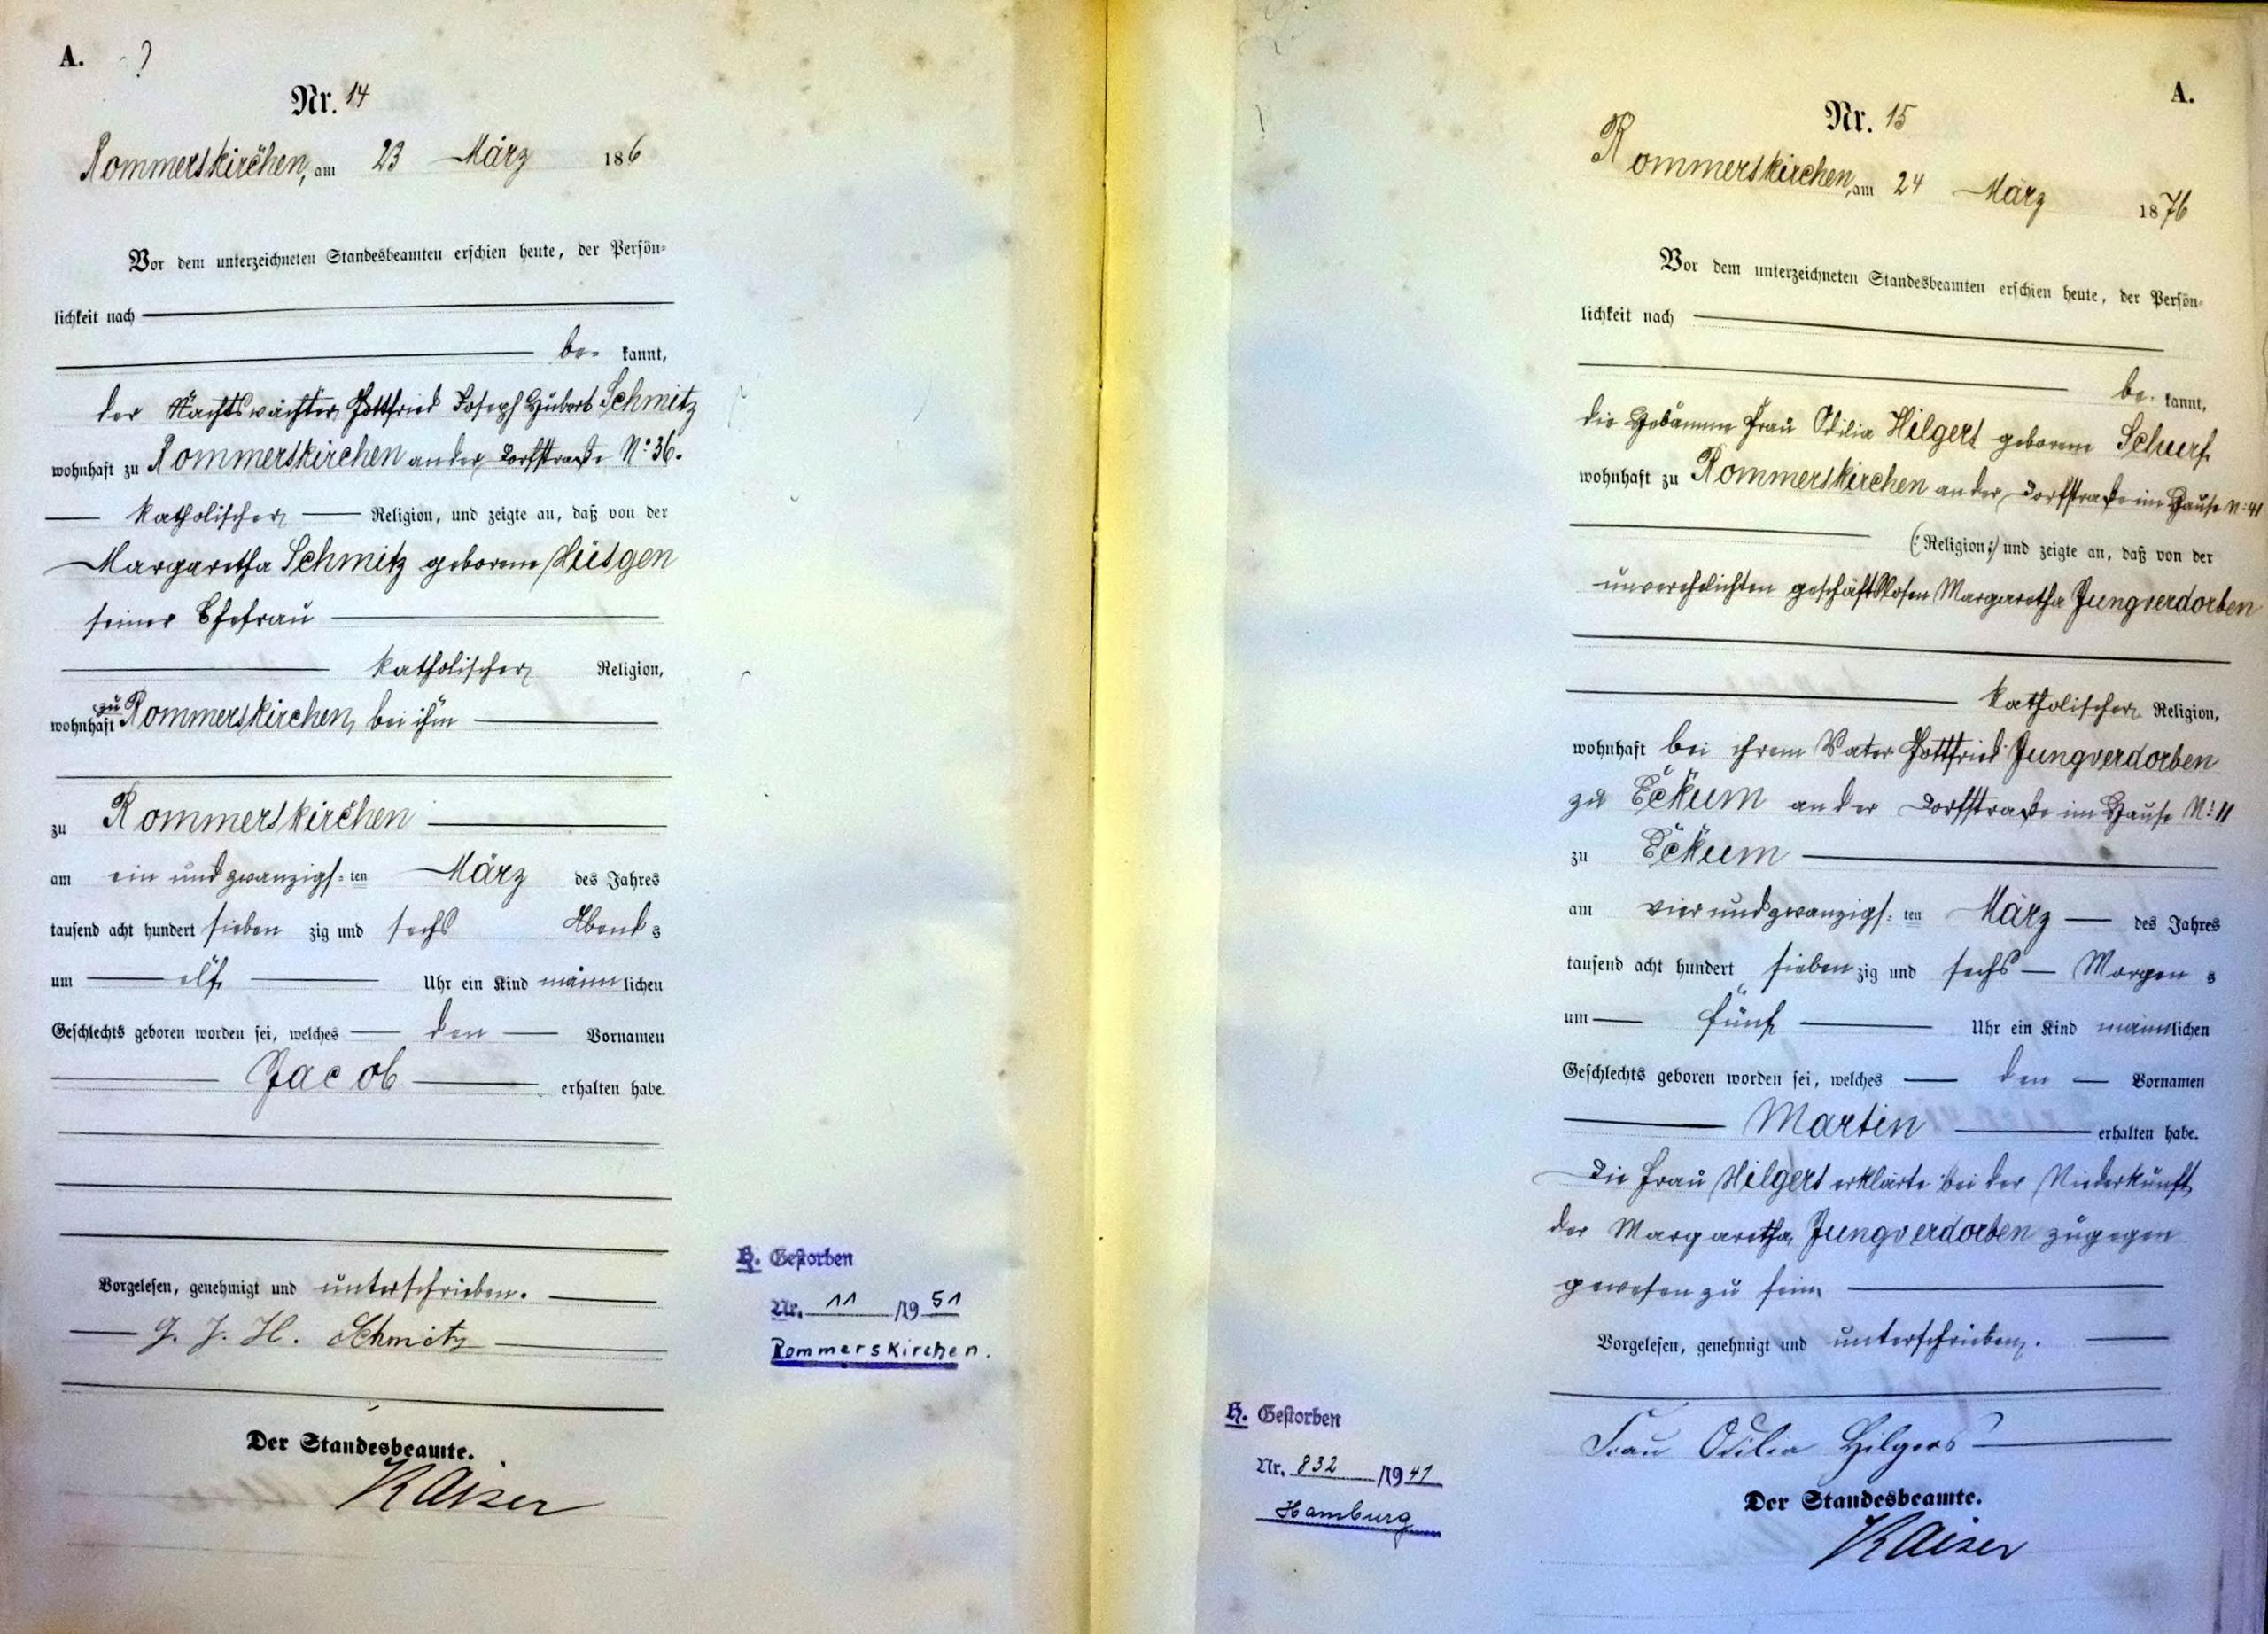 A.
Nr. 14
Rommerskirchen, am 23 März 186
Vor dem unterzeichneten Standesbeamten erschien heute, der Persön-
lichkeit nach
be- kannt,
der Nachtswächter Gottfried Joseph Hubert Schmitz
wohnhaft zu Rommerskirchen an der Dorfstraße N: 36.
katholischer Religion, und zeigte an, daß von der
Margaretha Schmitz geborene Hüsgen
seiner Ehefrau
katholischer Religion,
wohnhaft zu Rommerskirchen, bei ihm
zu Rommerskirchen
am ein und zwanzigs- ten März des Jahres
tausend acht hundert sieben zig und sechs Abend s
um elf Uhr ein Kind männlichen
Geschlechts geboren worden sei, welches den Vornamen
Jacob erhalten habe.
Vorgelesen, genehmigt und unterschrieben.
G. J. H. Schmitz
Der Standesbeamte.
Kaiser
H. Gestorben
Nr. 11 /19 51
Rommerskirchen.
A.
Nr. 15
Rommerskirchen, am 24 März 1876
Vor dem unterzeichneten Standesbeamten erschien heute, der Persön-
lichkeit nach
be- kannt,
die Hebamme Frau Odilia Hilgers geborene Schurf
wohnhaft zu Rommerskirchen an der Dorfstraße im Hause N: 41
(: Religion :) und zeigte an, daß von der
unverehelichten geschäftslosen Margaretha Jungverdorben
katholischer Religion,
wohnhaft bei ihrem Vater Gottfried Jungverdorben
zu Eckum an der Dorfstraße im Hause N: 11
zu Eckum
am vier und zwanzigs- ten März des Jahres
tausend acht hundert sieben zig und sechs Morgen s
um fünf Uhr ein Kind männlichen
Geschlechts geboren worden sei, welches den Vornamen
Martin erhalten habe.
Die Frau Hilgers erklärte bei der Niederkunft
der Margaretha Jungverdorben zugegen
gewesen zu sein
Vorgelesen, genehmigt und unterschrieben.
Frau Odilia Hilgers
Der Standesbeamte.
Kaiser
H. Gestorben
Nr. 832 /19 41
Hamburg